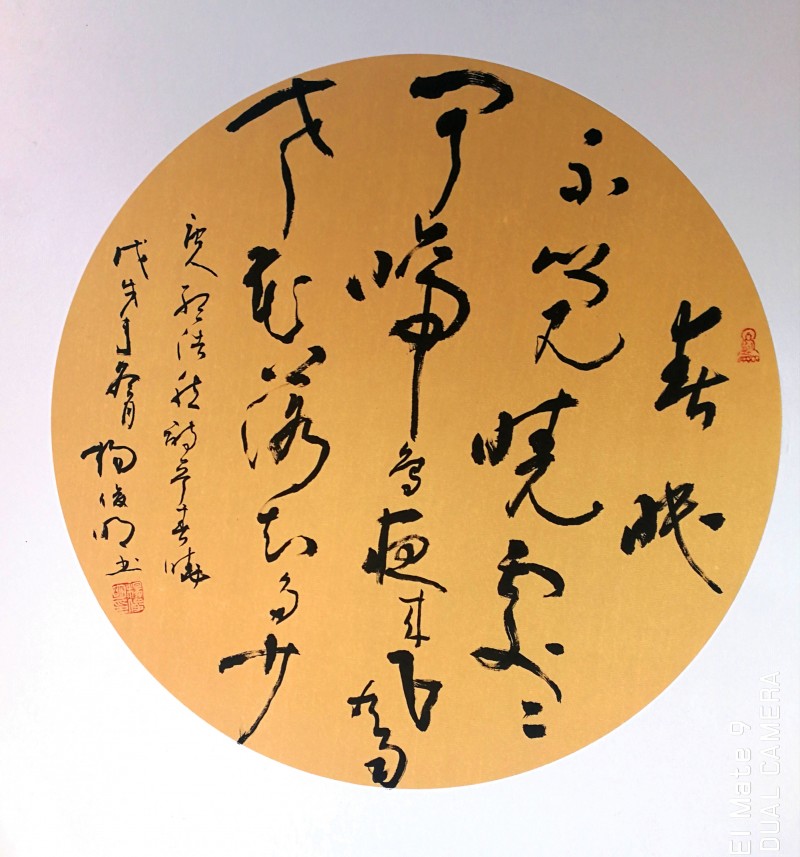 春眠
不觉晓處二
闻啼鸟夜来风雨
声花落知多少
唐人孟浩然詩春晓
戊戌年冬月杨俊明书
EI Mate 9
DUAL CAMERA